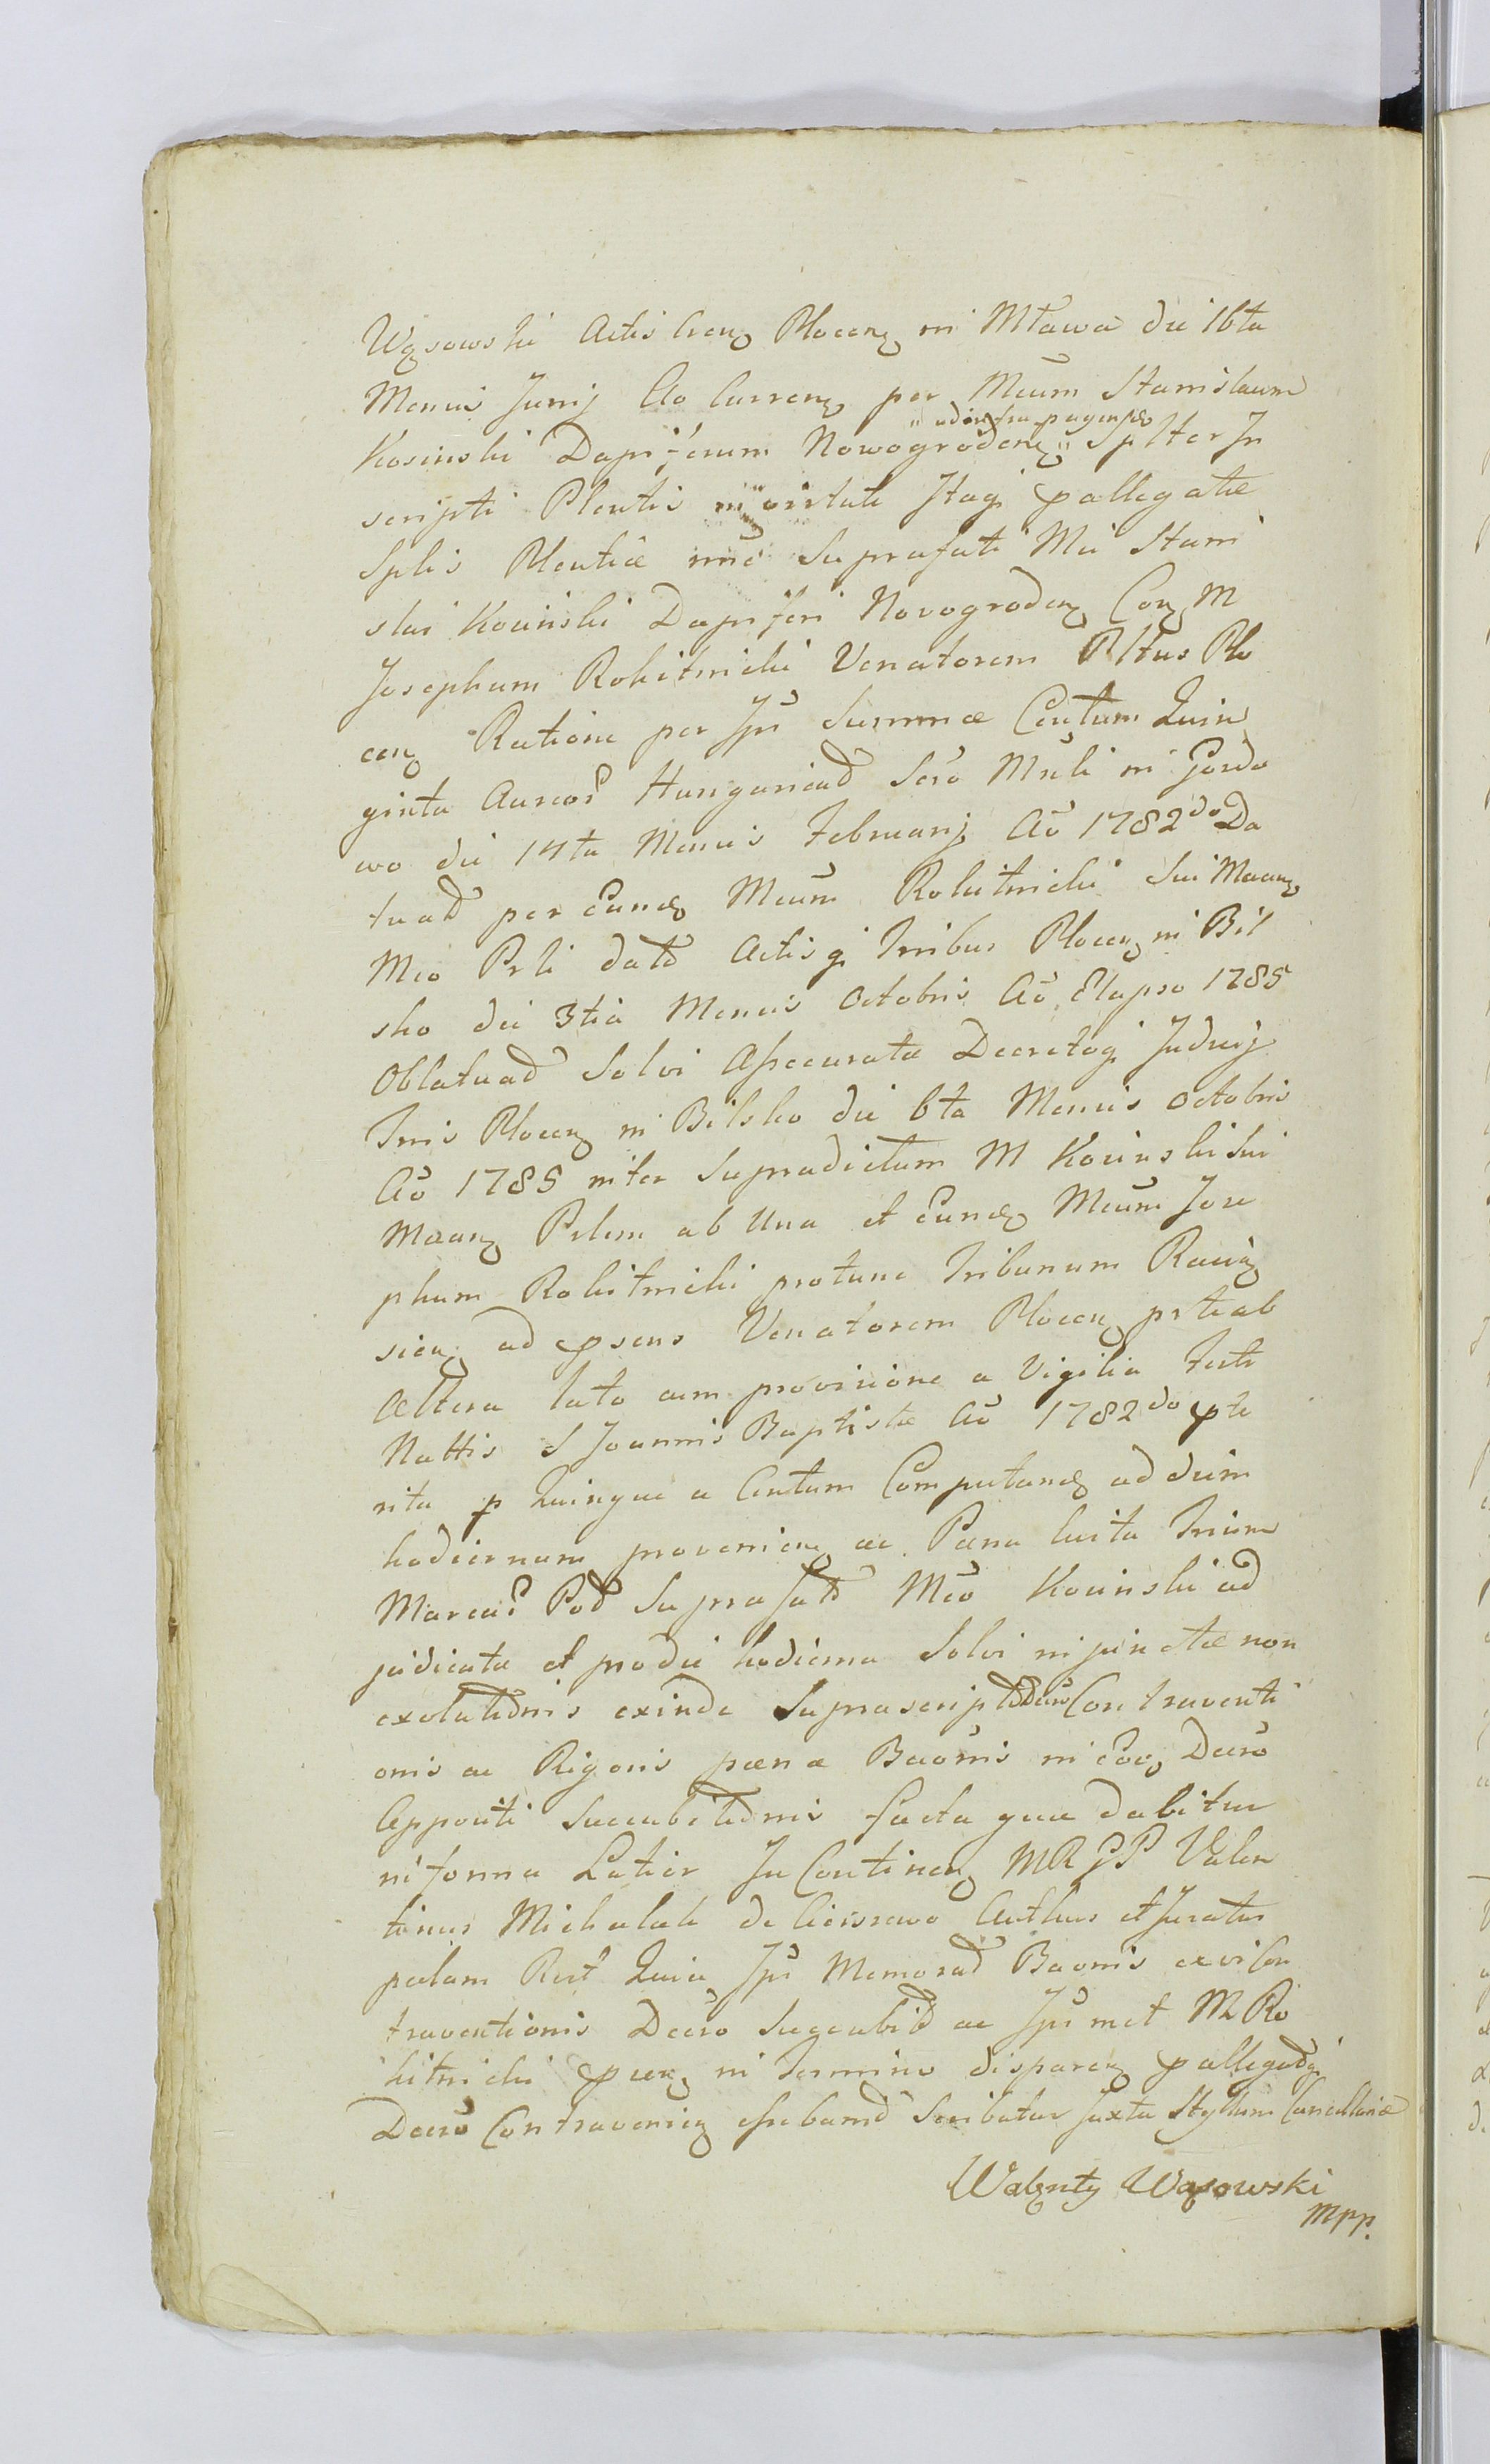 Wąsowski Actis Cren Plocen in Mława die 16ta
Mensis Junij Ao Curren per Mcum Stanislaum
" ad infra pagensdo
Kosinski Dapiferum Nowogroden " Splter In
scripti Plentis in virtute Itaq pallegatæ
Splis Plentiæ nne Suprafati Mci Stani
slai Kosinski Dapiferi Novogroden Con M
Josephum Rokitnicki Venatorem Pltus Plo
cen Ratione per Ipm Summæ Centum Quin
ginta Aureor Hungaricad Scro Mnli in Gordo
wo die 14ta Mensis Februarij Ao 1782do Da
tuad per Eund Mcum Rokitnicki Sui Maan
Mco Prli datd Actisq Trribus Plocen in Bil
sko die 3tia Mensis Octobris Ao Elapso 1785
Oblatuad Solvi Assecurata Decretoq Judicij
Trris Plocen in Bilsko die 6ta Mensis Octobris
Ao 1785 inter Supradictum M Kosinski Sui
Maan Prlem ab Una et Eund Mcum Jose
phum Rokitnicki protunc Tribunum Raciąz
sien ad psens Venatorem Plocen prte ab
Altera lato cum provisione a Vigilia Festi
Nattis S Joannis Baptistæ Ao 1782do pte
rita p Quinque a Centum Computand ad diem
hodiernam provenien ac Pæna luita Trium
Marcar Pod Suprafatd Mco Kosinski ad
judicata et prodie hodierna Solvi injunctæ non
exolutionis exinde Suprascriptd Decro Contraventi
onis ac Rigoris pænæ Baonis in Eod Decro
Appositi Succubitionis facta quæ dabitur
in forma Latior In Continen MRPP Valen
tinus Michalak de Cierszewo Authus et Juratus
palam Rect Quia Ipm Memorad Baonis ex vi Con
traventionis Decro Succubid ac Ipm met M Ro
kitnicki pcen in Termino disparen pallegadq
Decro Contravenien essebannd Scribatur juxta Styllum Cancellariæ
Walenty Wąsowski
mpp.